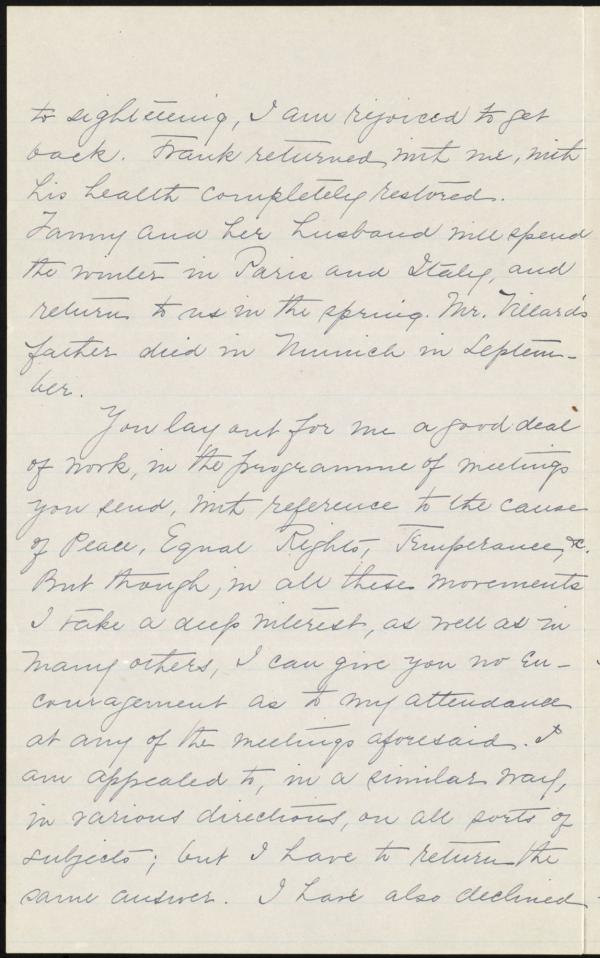 to sightseeing, I am rejoiced to get
back. Frank returned with me, with
his health completely restored.
Fanny and her husband will spend
the winter in Paris and Italy, and
return to us in the spring. Mr. Villard's
father died in Munich in Septem-
ber.
You lay out for me a good deal
of work, in the programme of meetings
you send, with reference to the cause
of Peace, Equal Rights, Temperance, &c.
But though, in all these movements
I take a deep interest, as well as in
many others, I can give you no en-
couragement as to my attendance
at any of the meetings aforesaid. I
am appealed to, in a similar way,
in various directions, on all sorts of
subjects; but I have to return the
same answer. I have also declined